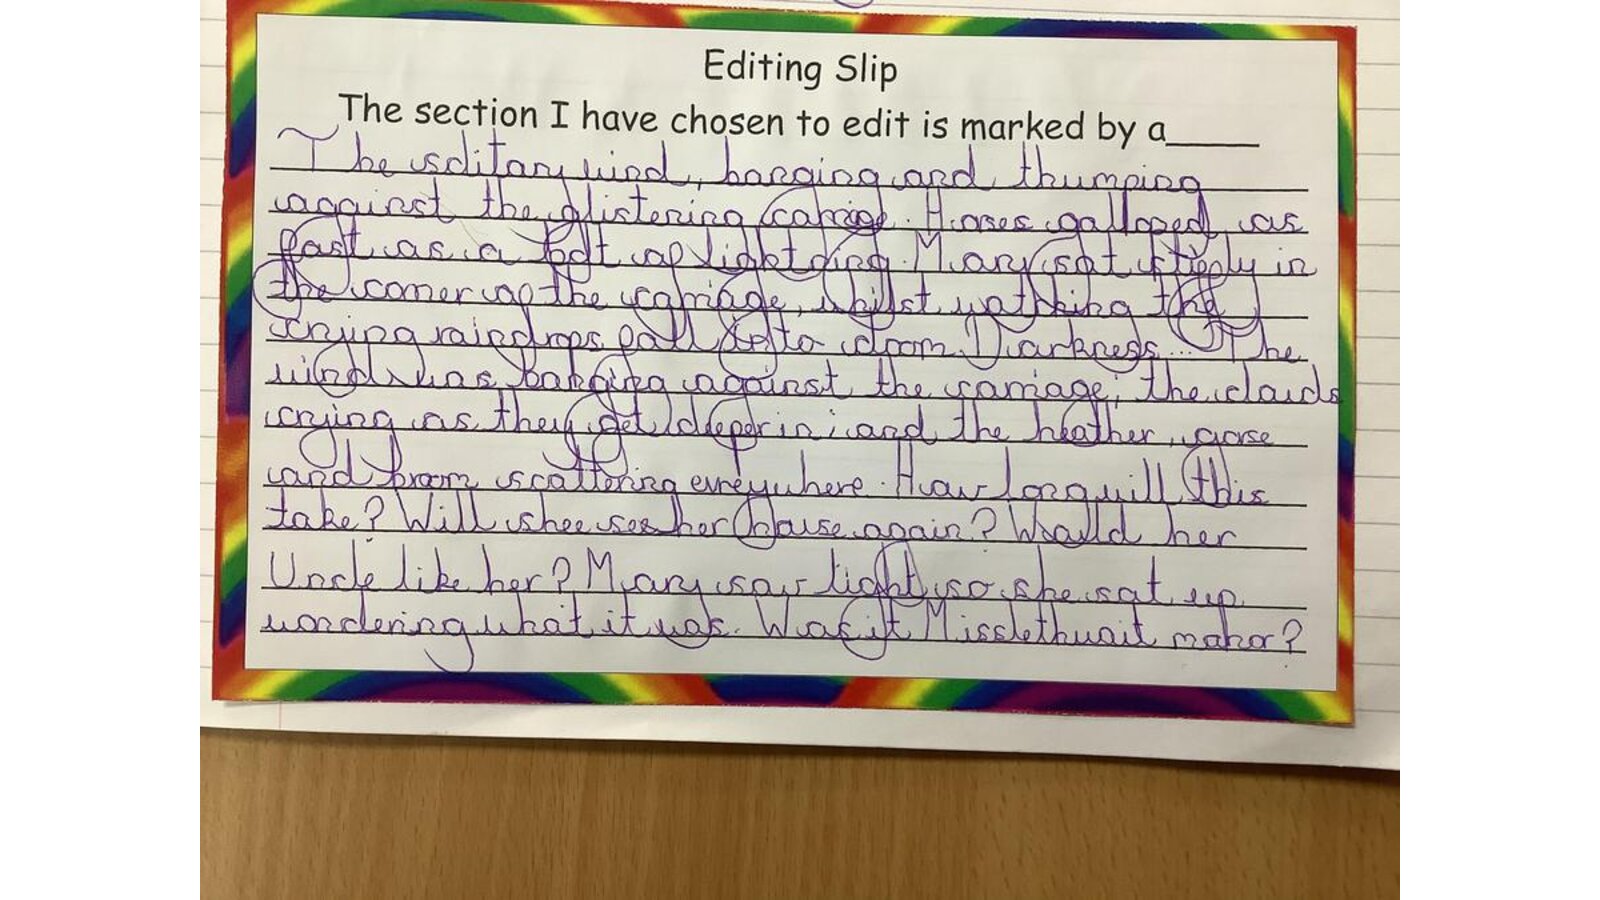 Editing Slip
The section I have chosen to edit is marked by a____
The solitary wind, banging and thumping
against the glistening carriage. Horses galloped as
fast as a bolt of lightning. Mary sat stiffly in
the corner of the carriage, whilst wathking the
crying raindrops fall into doom. Darkness... The
wind was banging against the carriage; the clouds
crying as they get deeper in; and the heather, gorse
and broom scattering evreywhere. How long will this
take? Will shee see her house again? Would her
Uncle like her? Mary saw light so she sat up
wondering what it was. Was it Misslethwait